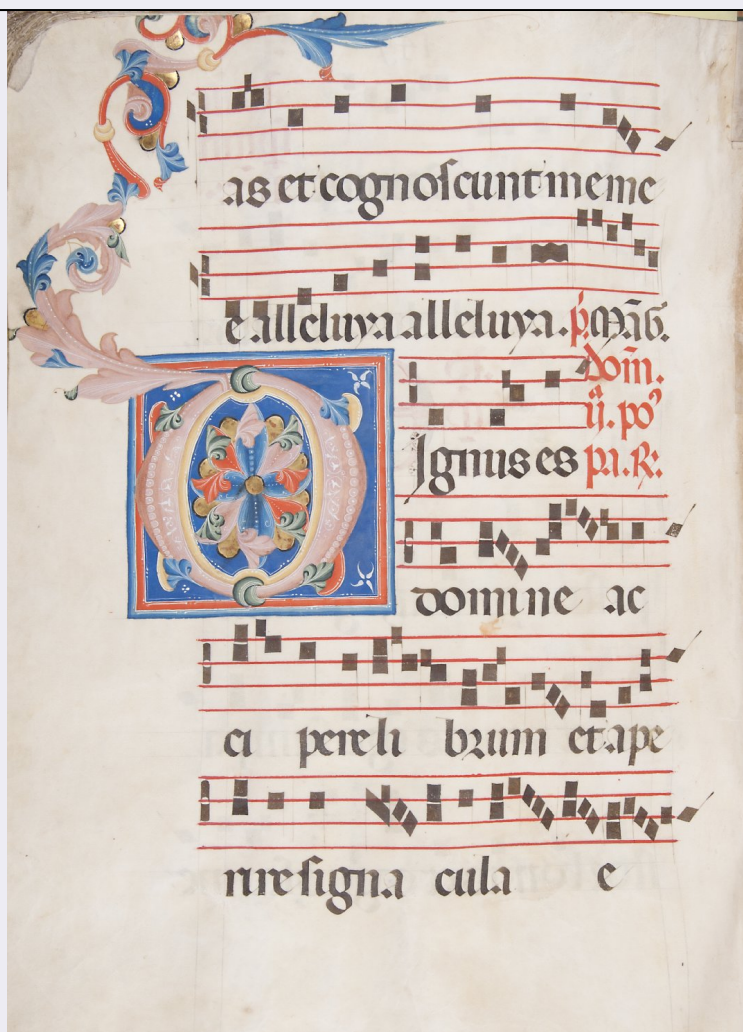 as et cognoscunt me me
e alleluya alleluya. p̄. Māg.
dom̄.
ii. po
Ignus es pa. R:
domine ac
ci pere li brum et ape
rire signa cula e